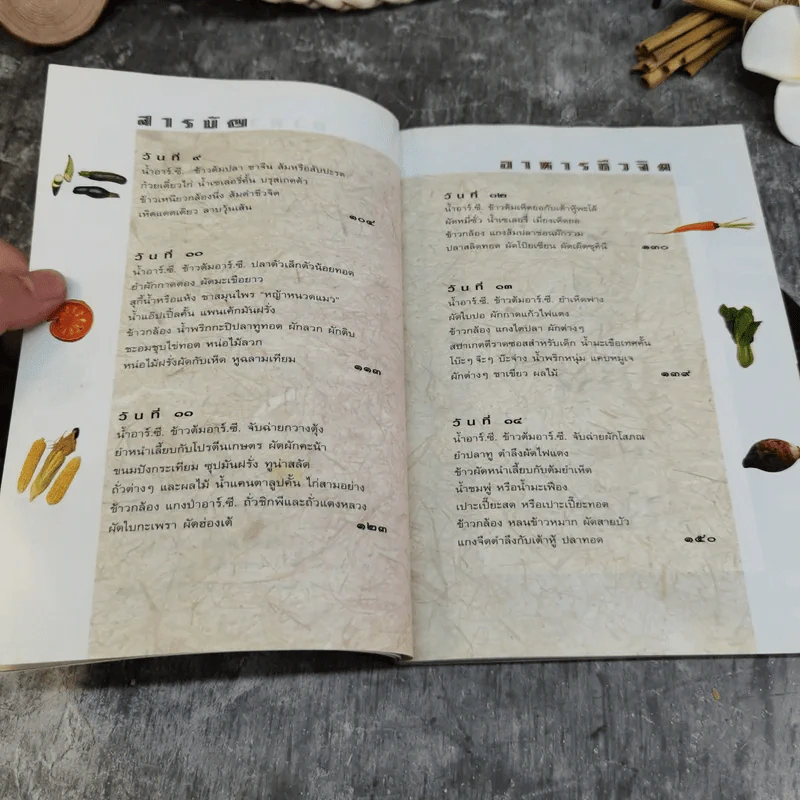 สารบัญ
วันที่ ๙
น้ำอาร์.ซี. ข้าวต้มปลา ชาจีน ส้มหรือสับปะรด
ก๋วยเตี๋ยวไก่ น้ำเซเลอรี่คั้น บรุสเกตต้า
ข้าวเหนียวกล้องนึ่ง ส้มตำชีวจิต
เห็ดแดดเดียว ลาบวุ้นเส้น ๑๐๔
วันที่ ๑๐
น้ำอาร์.ซี. ข้าวต้มอาร์.ซี. ปลาตัวเล็กตัวน้อยทอด
ยำผักกาดดอง ผัดมะเขือยาว
สุกี้น้ำหรือแห้ง ชาสมุนไพร "หญ้าหนวดแมว"
น้ำแอ๊ปเปิ้ลคั้น แพนเค้กมันฝรั่ง
ข้าวกล้อง น้ำพริกกะปิปลาทูทอด ผักลวก ผักดิบ
ชะอมชุบไข่ทอด หน่อไม้ลวก
หน่อไม้ฝรั่งผัดกับเห็ด หูฉลามเทียม ๑๑๓
วันที่ ๑๑
น้ำอาร์.ซี. ข้าวต้มอาร์.ซี. จับฉ่ายกวางตุ้ง
ยำหนำเลี้ยบกับโปรตีนเกษตร ผัดผักคะน้า
ขนมปังกระเทียม ซุปมันฝรั่ง ทูน่าสลัด
ถั่วต่างๆ และผลไม้ น้ำแคนตาลูปคั้น ไก่สามอย่าง
ข้าวกล้อง แกงป่าอาร์.ซี. ถั่วชิกพีและถั่วแดงหลวง
ผัดใบกะเพรา ผัดฮ่องเต้ ๑๒๓
อาหารชีวจิต
วันที่ ๑๒
น้ำอาร์.ซี. ข้าวต้มเห็ดยอกับเต้าหู้พะโล้
ผัดหมี่ซั่ว น้ำเซเลอรี่ เมี่ยงเห็ดยอ
ข้าวกล้อง แกงส้มปลาช่อนผักรวม
ปลาสลิดทอด ผัดโป๊ยเซียน ผัดเผ็ดซูคินี ๑๓๐
วันที่ ๑๓
น้ำอาร์.ซี. ข้าวต้มอาร์.ซี. ยำเห็ดฟาง
ผัดใบปอ ผักกาดแก้วไฟแดง
ข้าวกล้อง แกงไตปลา ผักต่างๆ
สปาเกตตีราดซอสสำหรับเด็ก น้ำมะเขือเทศคั้น
โป๊ะๆ จ๊ะๆ บ๊ะจ่าง น้ำพริกหนุ่ม แคบหมูเจ
ผักต่างๆ ชาเขียว ผลไม้ ๑๓๙
วันที่ ๑๔
น้ำอาร์.ซี. ข้าวต้มอาร์.ซี. จับฉ่ายผักโสภณ
ยำปลาทู ตำลึงผัดไฟแดง
ข้าวผัดหนำเลี้ยบกับต้มยำเห็ด
น้ำชมพู่ หรือน้ำมะเฟือง
เปาะเปี๊ยะสด หรือเปาะเปี๊ยะทอด
ข้าวกล้อง หลนข้าวหมาก ผัดสายบัว
แกงจืดตำลึงกับเต้าหู้ ปลาทอด ๑๕๐